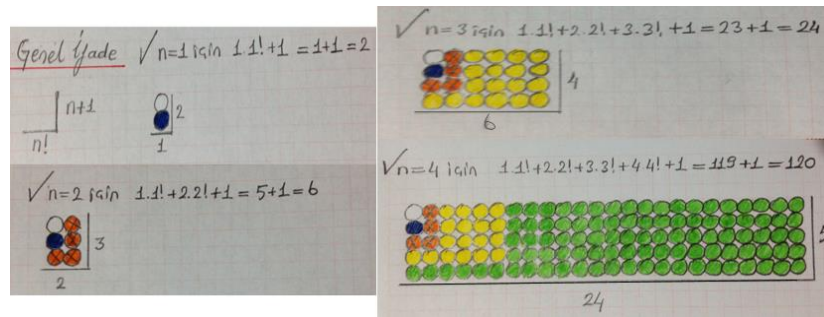 Genel İfade √ n=1 için 1.1!+1 = 1+1 = 2
n+1
n!
2
1
√ n=2 için 1.1!+2.2!+1 = 5+1 = 6
3
2
√ n=3 için 1.1!+2.2!+3.3!+1 = 23+1 = 24
4
6
√ n=4 için 1.1!+2.2!+3.3!+4.4!+1 = 119+1 = 120
5
24